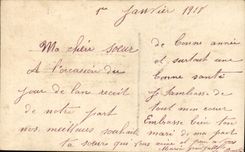 1er Janvier 1918
Ma chère soeur
A l'occasion du
jour de l'an reçoit
de notre part
mes meilleurs souhaits
de bonne année
et surtout une
bonne santé
Je t'embrasse de
tout mon coeur
Embrasse bien ton
mari de ma part
Ta soeur que vous aime